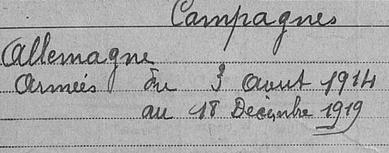 Campagnes
Allemagne
Armées du 3 Aout 1914
au 18 Décembre 1919